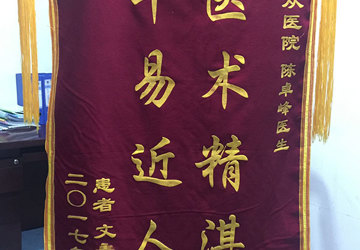 医院 陈卓峰医生
医术精湛
平易近人
患者 文
二〇一七年